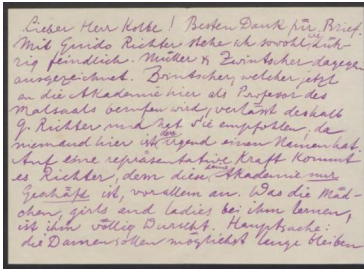 Lieber Herr Kolbe! Besten Dank für Brief.
Mit Guido Richter stehe ich sowohl
feindlich. Müller & Zwintscher dagegen
ausgezeichnet. Zwintscher, welcher jetzt
an die Akademie hier als Professor des
Malsaals berufen wird, verlässt deshalb
G. Richter und hat Sie empfohlen, da
niemand hier der irgend einen Namen hat.
Auf eine repräsentative Kraft kommt
es Richter, dem diese Akademie nur
Geschäft ist, vor allem an. Was die Mäd-
chen, girls and ladies bei ihm lernen,
ist ihm völlig Hauptsache:
die Damen sollen möglichst lange bleiben